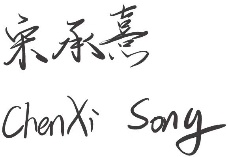 宋承熹
ChenXi Song